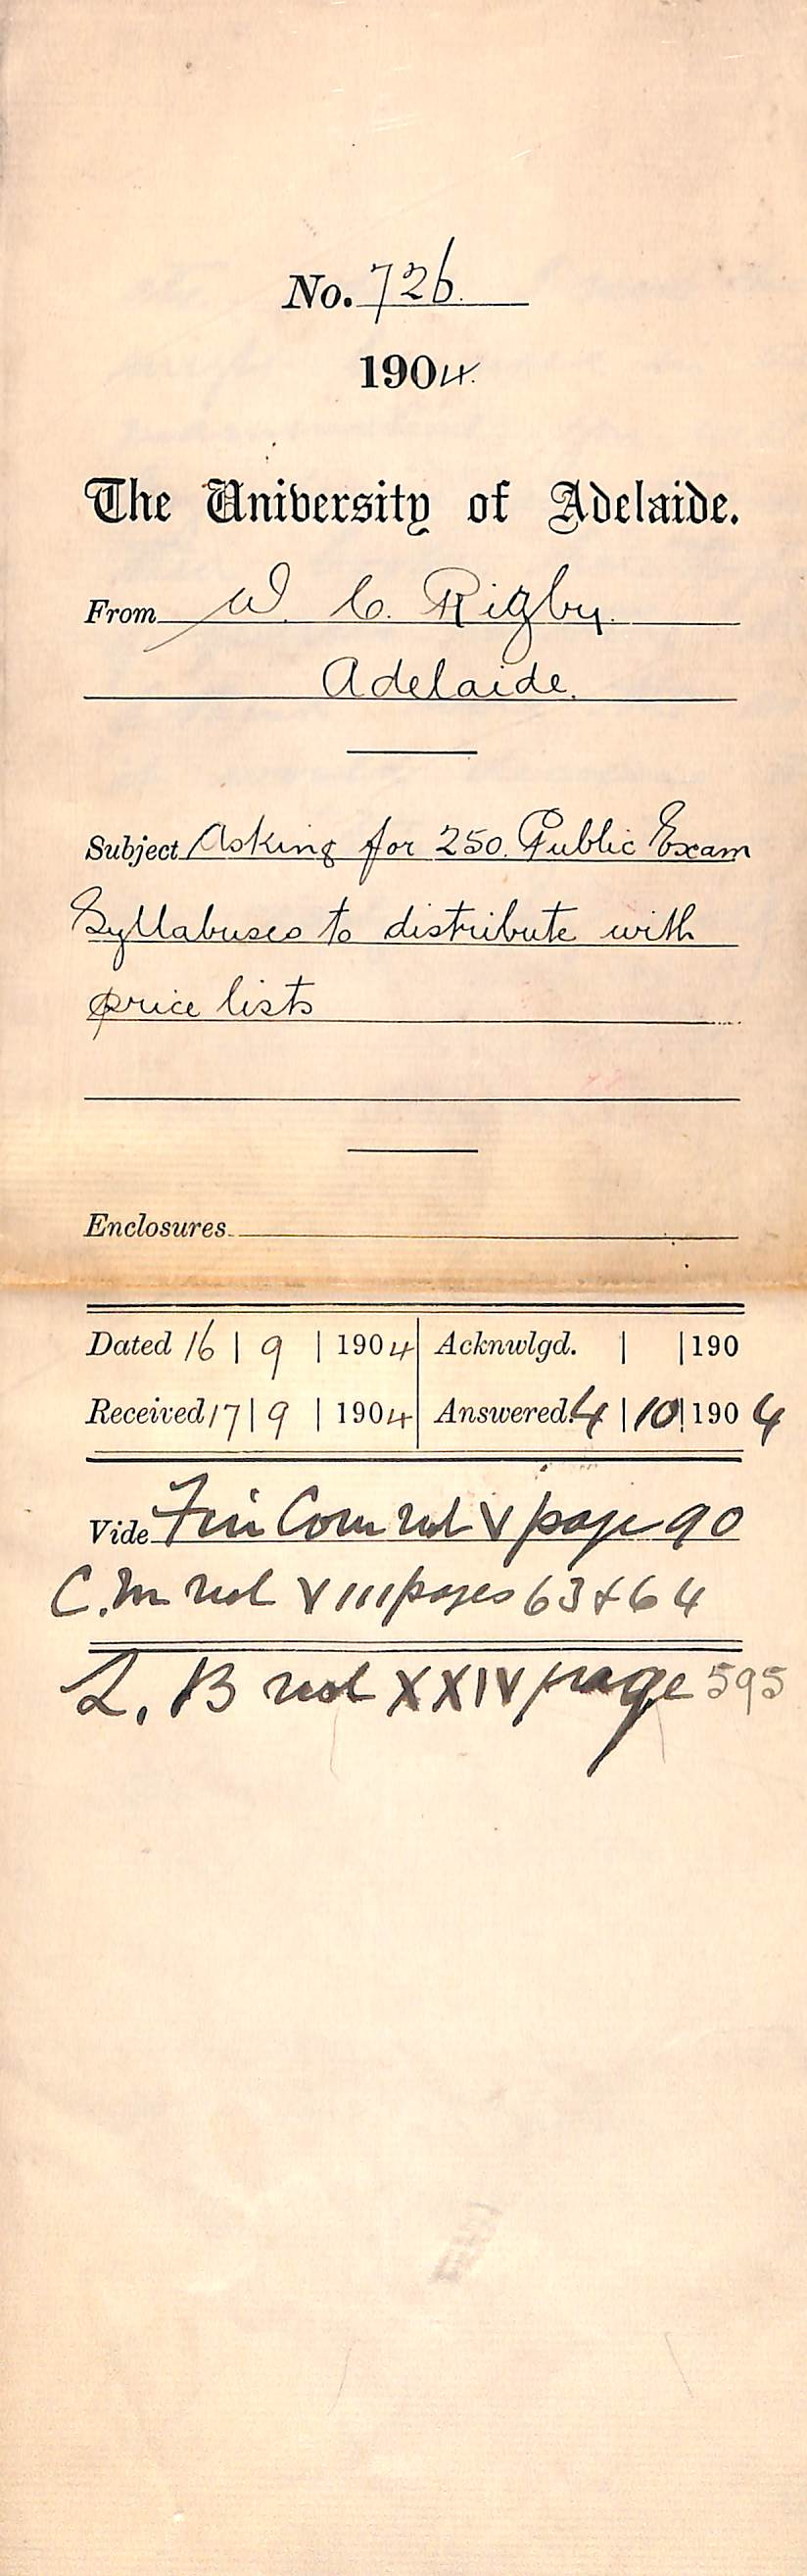 No. 726.
1904.
The University of Adelaide.
From W. C. Rigby.
Adelaide.
Subject Asking for 250. Public Exam
Syllabuses to distribute with
price lists
Enclosures
Dated 16 | 9 | 1904 Acknwlgd. | | 190
Received 17 | 9 | 1904 Answered. 4 | 10 | 1904
Vide Fin Com vol V page 90
C.M vol VIII pages 63 & 64
L. B vol XXIV page 595